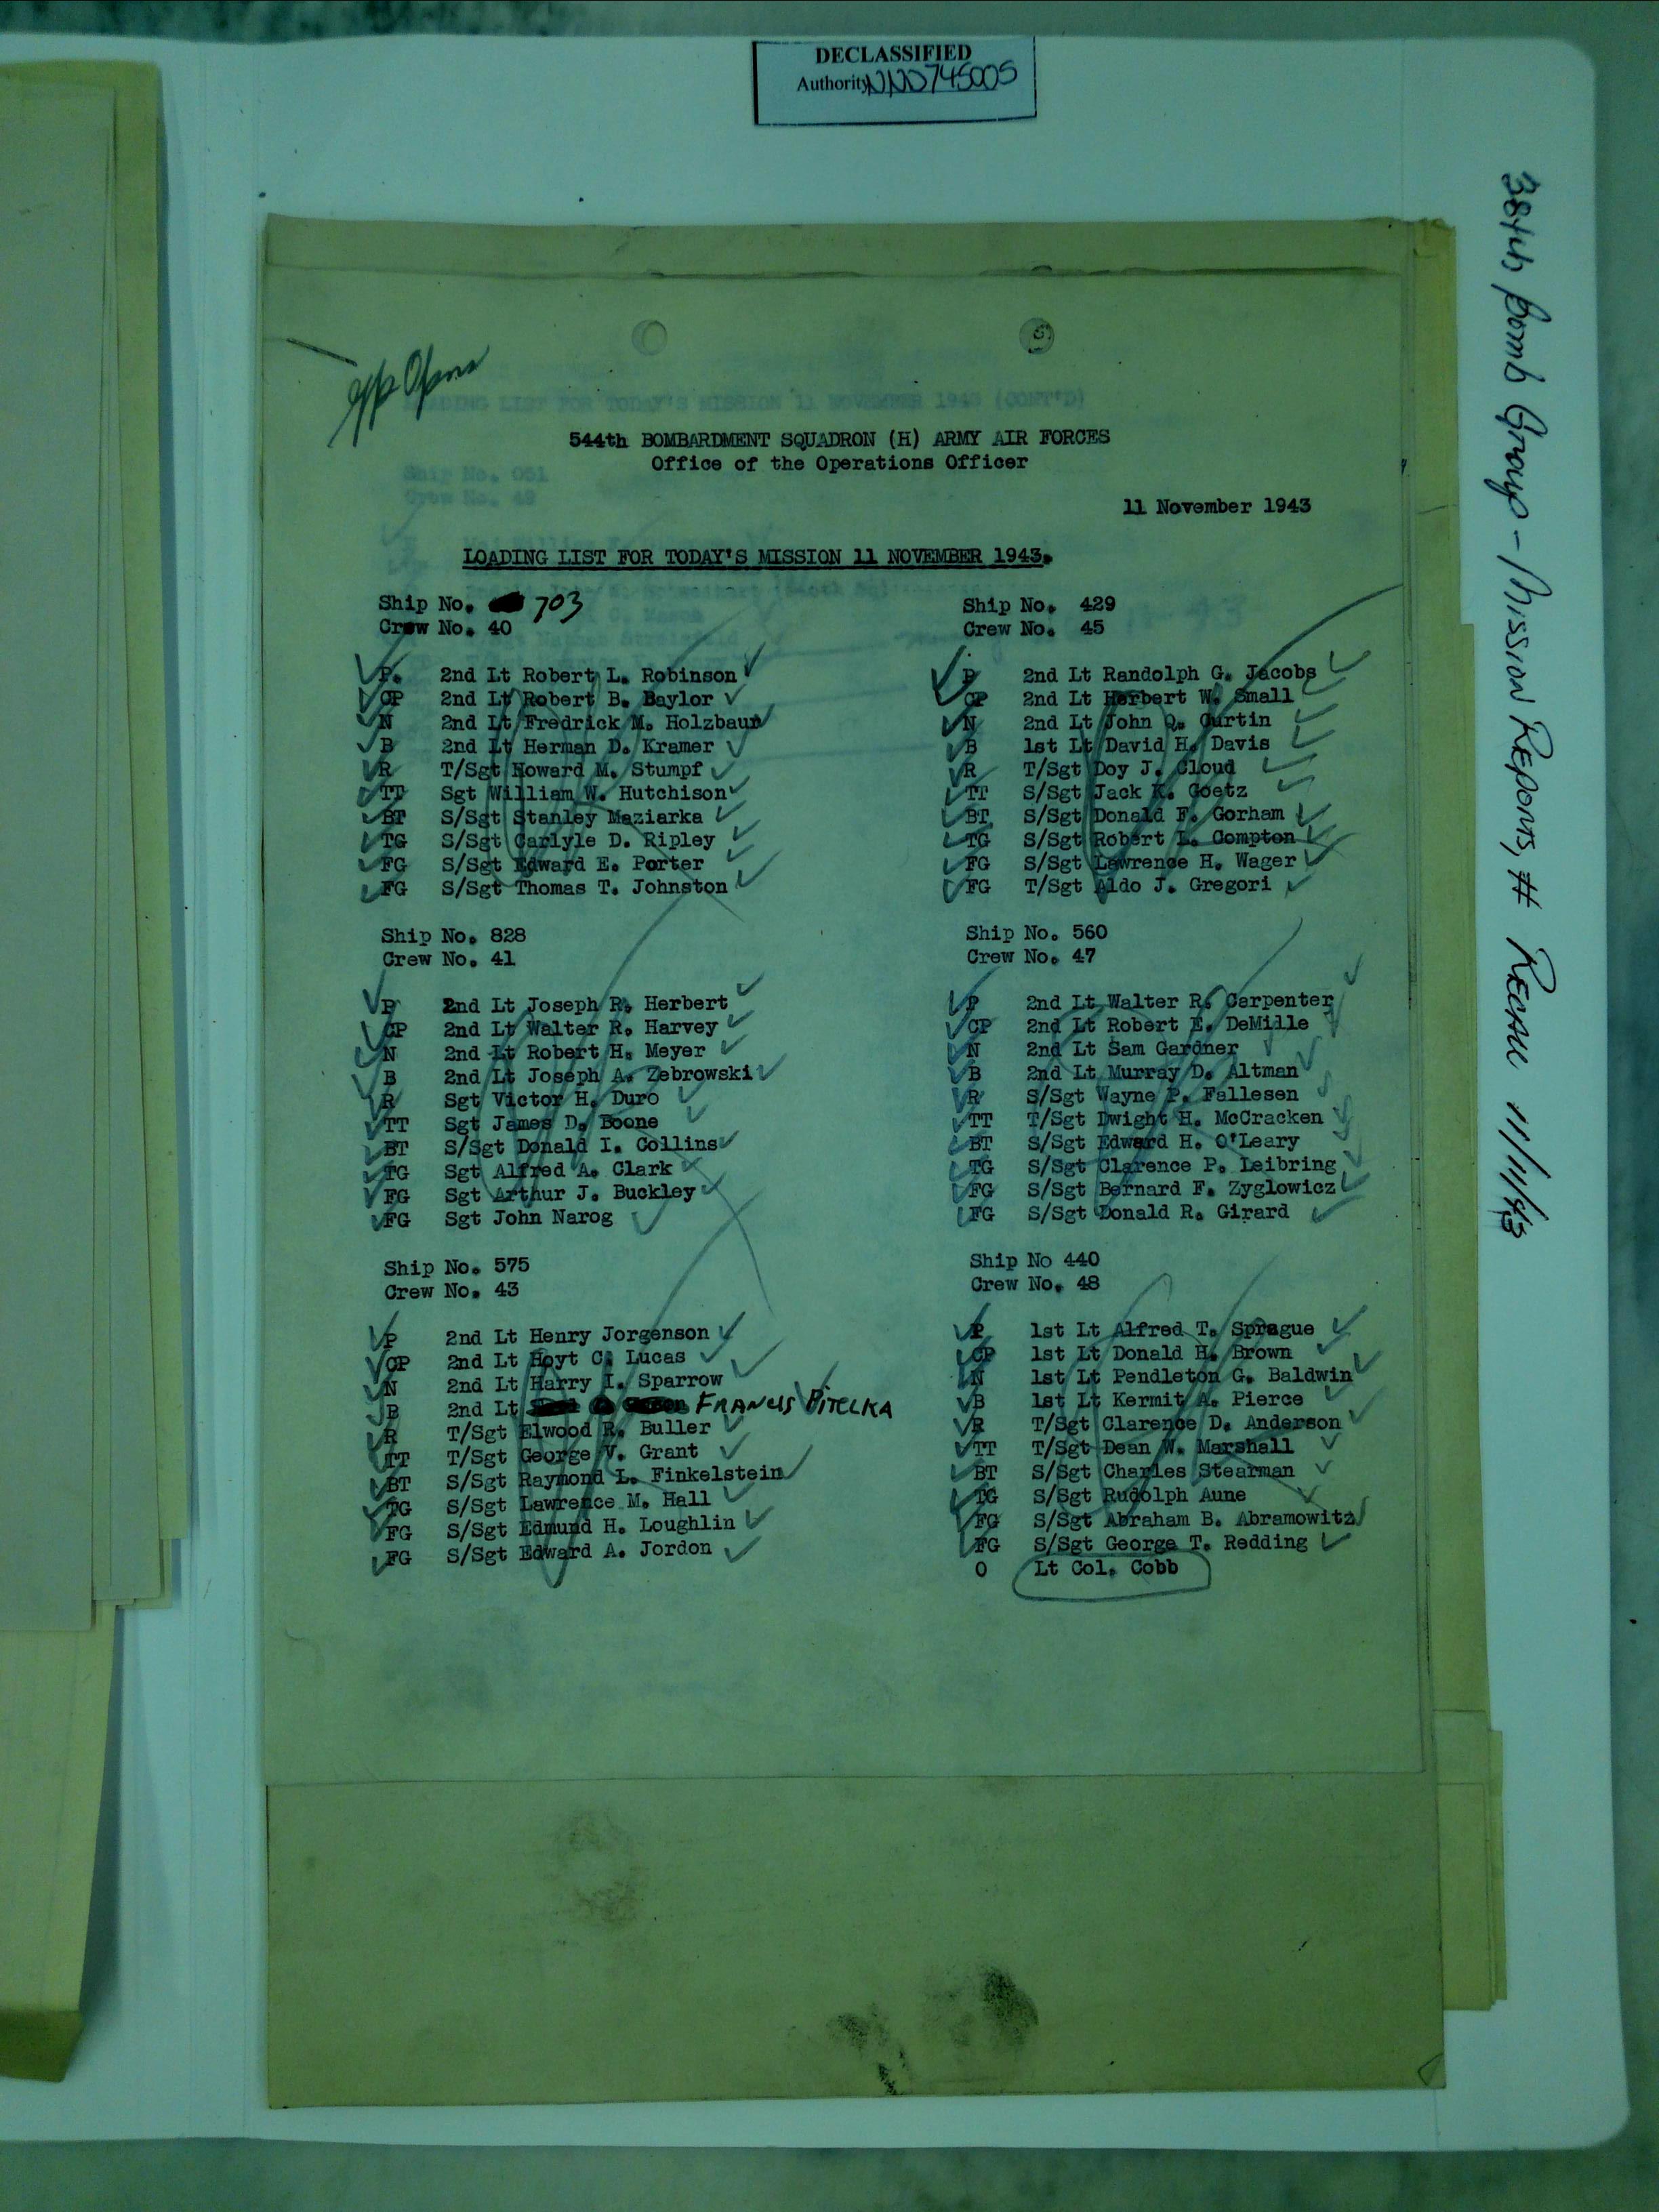 DECLASSIFIED
Authority NND745005
384th Bomb Group - Mission Reports, # RECALL 11/11/43
Gp Opns
544th BOMBARDMENT SQUADRON (H) ARMY AIR FORCES
Office of the Operations Officer
11 November 1943
LOADING LIST FOR TODAY'S MISSION 11 NOVEMBER 1943.
Ship No. 703
Crew No. 40
P. 2nd Lt Robert L. Robinson
CP 2nd Lt Robert B. Baylor
N 2nd Lt Fredrick M. Holzbaur
B 2nd Lt Herman D. Kramer
R T/Sgt Howard M. Stumpf
TT Sgt William W. Hutchison
BT S/Sgt Stanley Maziarka
TG S/Sgt Carlyle D. Ripley
FG S/Sgt Edward E. Porter
FG S/Sgt Thomas T. Johnston
Ship No. 828
Crew No. 41
P 2nd Lt Joseph R. Herbert
CP 2nd Lt Walter R. Harvey
N 2nd Lt Robert H. Meyer
B 2nd Lt Joseph A. Zebrowski
R Sgt Victor H. Duro
TT Sgt James D. Boone
BT S/Sgt Donald I. Collins
TG Sgt Alfred A. Clark
FG Sgt Arthur J. Buckley
FG Sgt John Narog
Ship No. 575
Crew No. 43
P 2nd Lt Henry Jorgenson
CP 2nd Lt Hoyt C. Lucas
N 2nd Lt Harry I. Sparrow
B 2nd Lt FRANCIS PITELKA
R T/Sgt Elwood R. Buller
TT T/Sgt George V. Grant
BT S/Sgt Raymond L. Finkelstein
TG S/Sgt Lawrence M. Hall
FG S/Sgt Edmund H. Loughlin
FG S/Sgt Edward A. Jordon
Ship No. 429
Crew No. 45
P 2nd Lt Randolph G. Jacobs
CP 2nd Lt Herbert W. Small
N 2nd Lt John Q. Curtin
B 1st Lt David H. Davis
R T/Sgt Doy J. Cloud
TT S/Sgt Jack K. Goetz
BT S/Sgt Donald F. Gorham
TG S/Sgt Robert L. Compton
FG S/Sgt Lawrence H. Wager
FG T/Sgt Aldo J. Gregori
Ship No. 560
Crew No. 47
P 2nd Lt Walter R. Carpenter
CP 2nd Lt Robert E. DeMille
N 2nd Lt Sam Gardner
B 2nd Lt Murray D. Altman
R S/Sgt Wayne P. Fallesen
TT T/Sgt Dwight H. McCracken
BT S/Sgt Edward H. O'Leary
TG S/Sgt Clarence P. Leibring
FG S/Sgt Bernard F. Zyglowicz
FG S/Sgt Donald R. Girard
Ship No 440
Crew No. 48
P 1st Lt Alfred T. Sprague
CP 1st Lt Donald H. Brown
N 1st Lt Pendleton G. Baldwin
B 1st Lt Kermit A. Pierce
R T/Sgt Clarence D. Anderson
TT T/Sgt Dean W. Marshall
BT S/Sgt Charles Stearman
TG S/Sgt Rudolph Aune
FG S/Sgt Abraham B. Abramowitz
FG S/Sgt George T. Redding
O Lt Col. Cobb